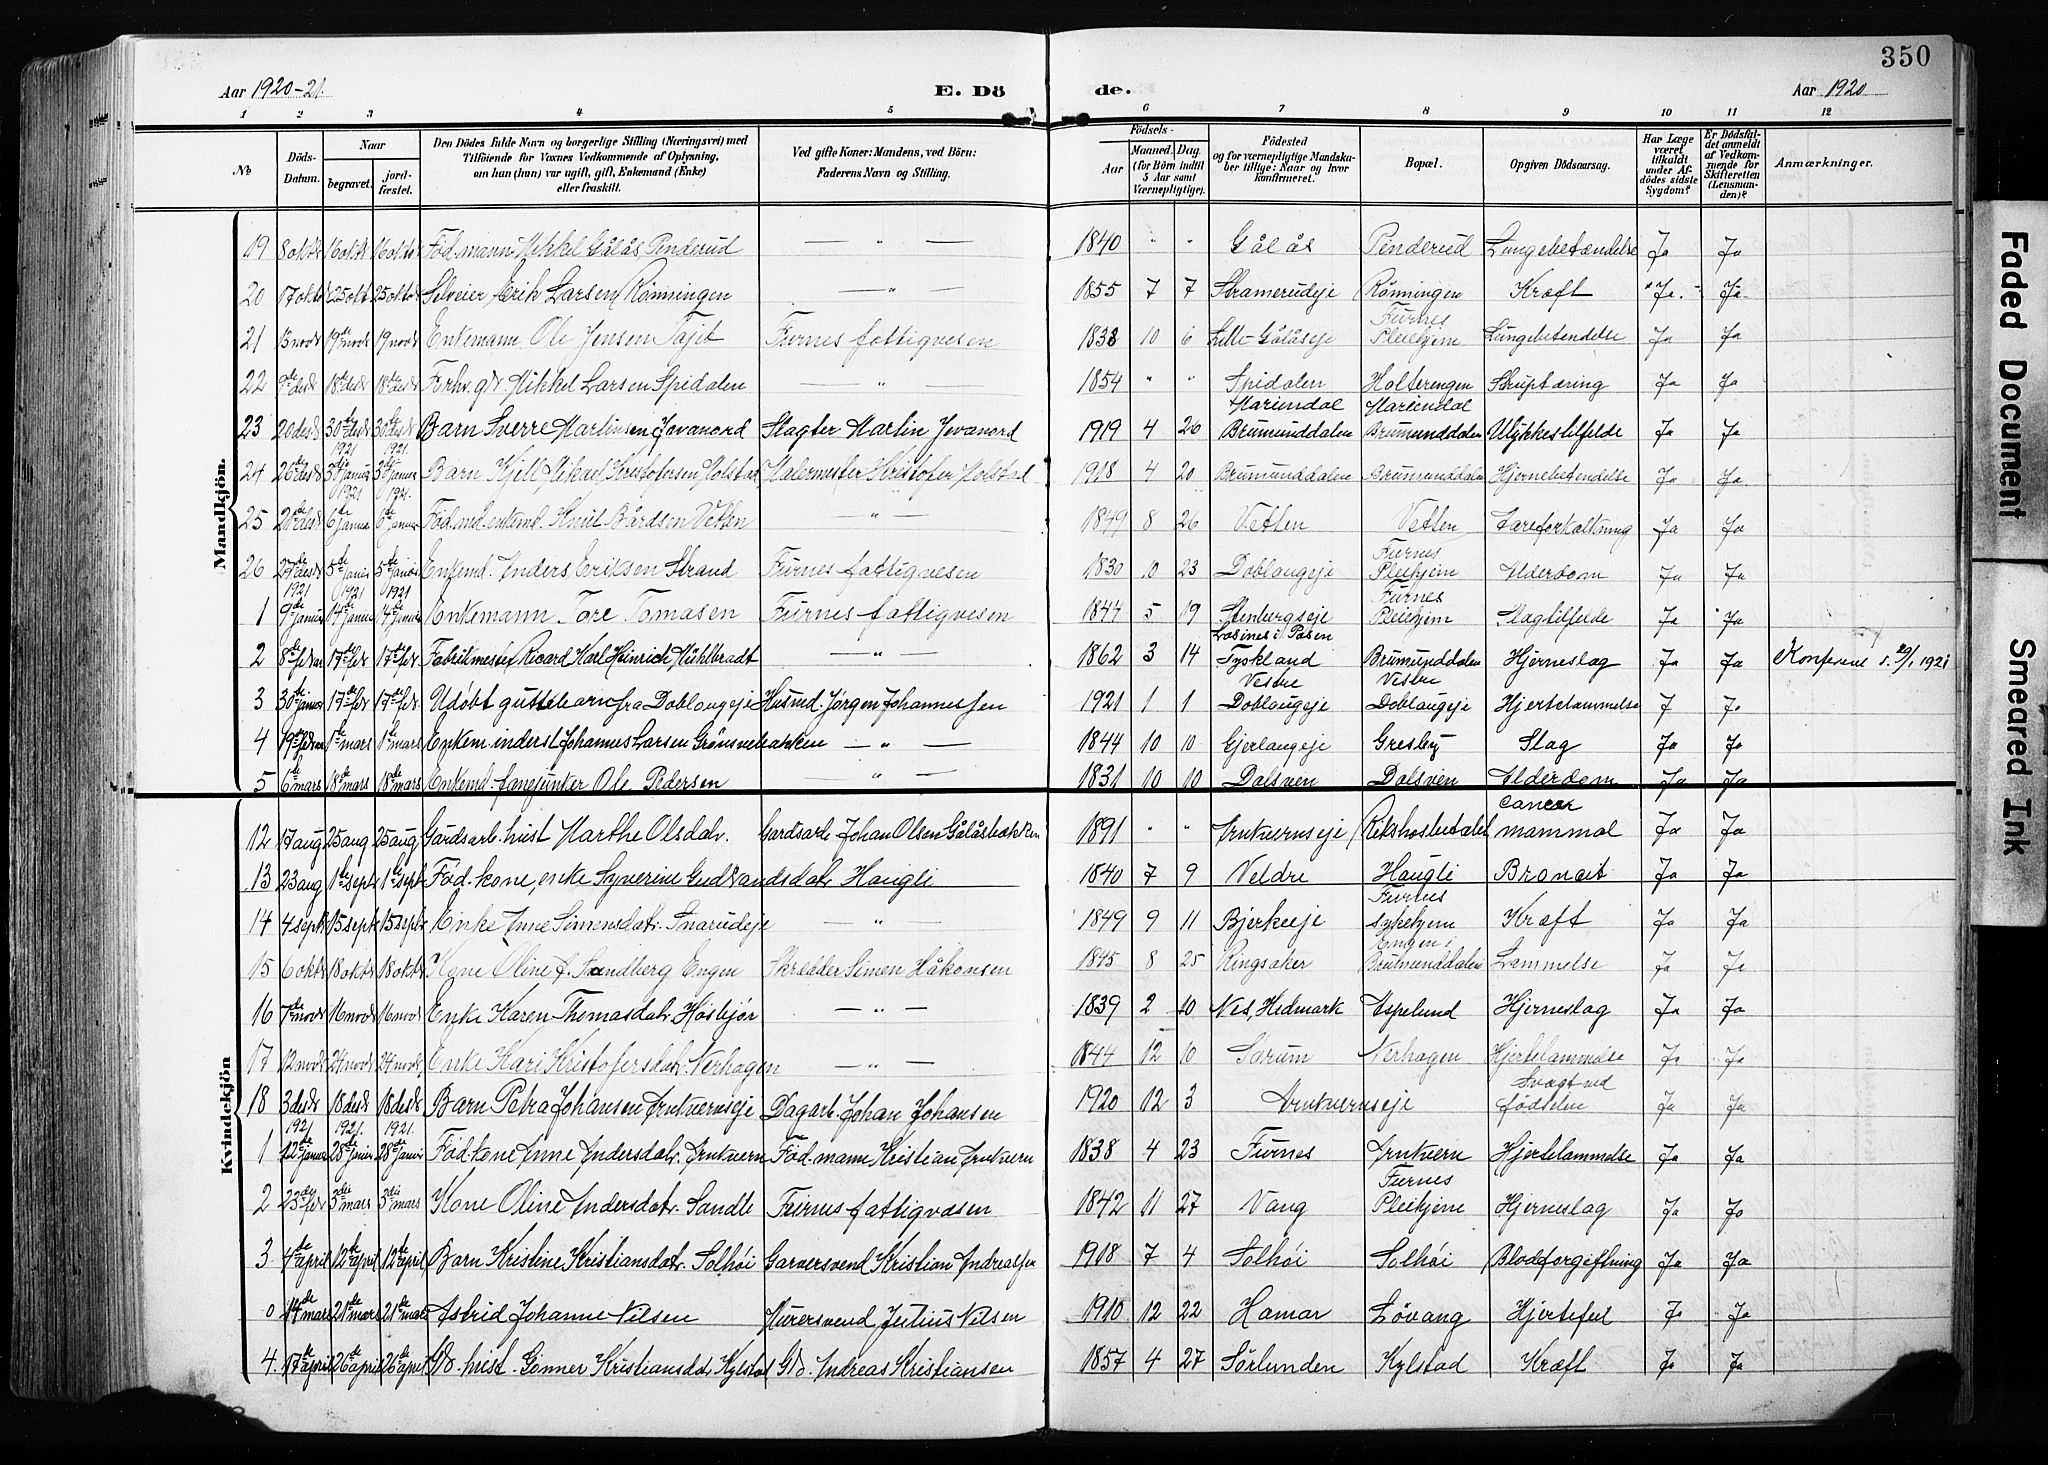 350
Aar 1920-21. E. Dö de. Aar 1920
1 2 3 4 5 6 7 8 9 10 11 12
№ Döds-Datum. Naar begravet. jordfæstet. Den Dödes fulde Navn og borgerlige Stilling (Næringsvei) med Tilföiende for Voxnes Vedkommende af Oplysning, om han (hun) var ugift, gift, Enkemand (Enke) eller fraskilt. Ved gifte Koner: Mandens, ved Börn: Faderens Navn og Stilling. Födsels- Aar Maaned. Dag. (for Börn indtil 5 Aar samt Værnepligtige). Födested og for værnepligtige Mandskaber tillige: Naar og hvor konfirmeret. Bopæl. Opgiven Dödsaarsag. Har Læge været tilkaldt under Afdödes sidste Sygdom? Er Dödsfaldet anmeldt af Vedkommende for Skifteretten (Lensmanden)? Anmærkninger.
Mandkjön.
19 8 oktr 16 oktr 16 oktr Föd.mann Mikkel Gålås Penderud — " — 1840 " " Gålås Penderud Lungebetændelse Ja Ja
20 17 oktr 25 okt 25 oktr Selveier Erik Larsen Rönningen — " — 1855 7 7 Stramerudeje Rönningen Kræft Ja. Ja
21 13 novr 19de novr 19 novr Enkemann Ole Jensen Tajet Furnes fattigvesen 1838 10 6 Lille-Gålåseje Furnes Pleiehjem Lungebetendelse Ja Ja
22 9de desr 18de desr 18de desr Forhv. gdr Mikkel Larsen Spidalen — " — 1854 " " Spidalen Holterengen Struptæring Ja Ja
23 20 desr 30te desr 30te desr Barn Sverre Martinsen Jevanord Slagter Martin Jevanord 1919 4 26 Mariendal Brumunddalen Mariendal Brumunddalen Ulykkestilfelde Ja Ja
24 26de desr 1921 3die januar 1921 3die januar Barn Kjell Mikael Kristofersen Molstad Malermester Kristofer Molstad 1918 4 20 Brumunddalen Brumunddalen Hjernebetendelse Ja Ja
25 desr 1921 6 januar 1921 6te januar Föd.md. enkemd. Knut Bårdsen Vetten — " — 1849 8 26 Vetten Vetten Åreforkalkning Ja Ja
26 27de desr 5te januar 5te januar Enkemd. Anders Eriksen Strand Furnes fattigvesen 1830 10 23 Doblougeje Furnes Pleiehjem Elderdom Ja Ja
1 1921 9de januar 1921 14de januar 1921 14de januar Enkemann Tore Tomasen Furnes fattigvesen 1844 5 19 Stenbergseje Furnes Pleiehjem Slagtilfelde Ja Ja
2 8de febr 17de febr 17de febr Fabrikmester Ricard Karl Heinrich Mühlbradt — " — 1862 3 14 Losines i Posen Tyskland Brumunddalen Hjerneslag Ja Ja
3 30te januar 17de febr 17de febr Udöbt guttebarn fra Doblougeje Husmd. Jörgen Johannessen 1921 1 1 Vestre Doblougeje Vestre Doblougeje Hjertelammelse J Ja
4 19de febr 1ste mars 1ste mars Enkem. inderst Johannes Larsen Grönsvebakken — " — 1844 10 10 Gjerlaugeje Gresby Slag Ja Ja
5 6te mars 18de mars 18de mars Enkemd. fanejunker Ole Pedersen — " — 1831 10 10 Dalsven Dalsven Elderdom Ja Ja
Kvindekjön
12 17 aug 25 aug 25 aug Gårdsarb. hust Marthe Olsdatr. Gardsarb. Johan Olsen Gålåsbækken 1891 " " Arnkvernseje Rikshospitalet Cancer mammal Ja Ja
13 23 aug 1ste sept 1ste sept Föd. kone, enke Syverine Gudbrandsdatr Haugli 1840 7 9 Veldre Haugli Bronait Ja Ja
14 4 septr 15 septr 15 septr Enke Anne Simensdatr. Snarudeje — " — 1849 9 11 Bjerkeeje Furnes sykehjem Kræft Ja Ja
15 6 oktr 18 oktr 18 oktr Kone Oline f. Sandberg Engen Skrædder Simen Håkonsen 1845 8 25 Ringsaker Engen i Brumunddalen Lammelse Ja Ja
16 7de novr 16 novr 16 novr Enke Karen Thomasdatr. Hösbjör — " — 1839 2 10 Nes, Hedmark Espelund Hjerneslag Ja Ja
17 12 novr 24 novr 24 novr. Enke Kari Kristofersdatr. Nerhagen — " — 1844 12 10 Sörum Nerhagen Hjertelammelse Ja Ja
18 3 desr 18 desr 18 desr Barn Petra Johansen Arnkvernseje Dagarb. Johan Johansen 1920 12 3 Arnkvernseje Svagt ved födselen Ja Ja
1 1921 12te januar 1921. 28de januar 1921. 28de januar Föd. kone Anne Andersdatr. Arnkvern Föd. mann Kristian Arnkvern 1838 4 23 Furnes Arnkvern Hjertelammelse Ja Ja
2 23de febr 3die mars 3die mars Kone Oline Andersdatr. Sandli Furnes fattigvæsen 1842 11 27 Vang Furnes Pleiehjem Hjerneslag Ja Ja
3 4de april 12te april 12te april Barn Kristine Kristiansdatr. Solhöi Garversvend Kristian Andreassen 1918 7 4 Solhöi Solhöi Blodforgiftning Ja Ja
0 14de mars 21de mars 21de mars Astrid Johanne Nilsen Murersvend Julius Nilsen 1910 12 22 Hamar Lövang Hjertefeil Ja Ja
4. 17de april 26de april 26de april Gdr. hust. Gunner Kristiansdatr Kylstad Gdr. Andreas Kristiansen 1857 4 27 Sörlunden Kylstad Kræft Ja Ja
Faded Document
Smeared Ink